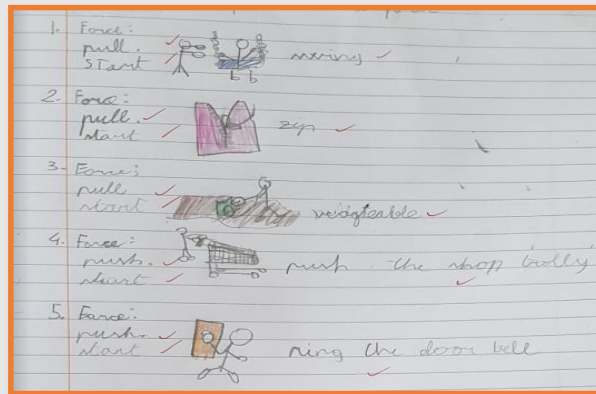 1. Force:
pull.
START
swing
2. Force:
pull.
start
zip
3. Force:
pull
start
4. Force:
push.
start
push the shop trolly
5. Force:
push.
start
ring the door bell